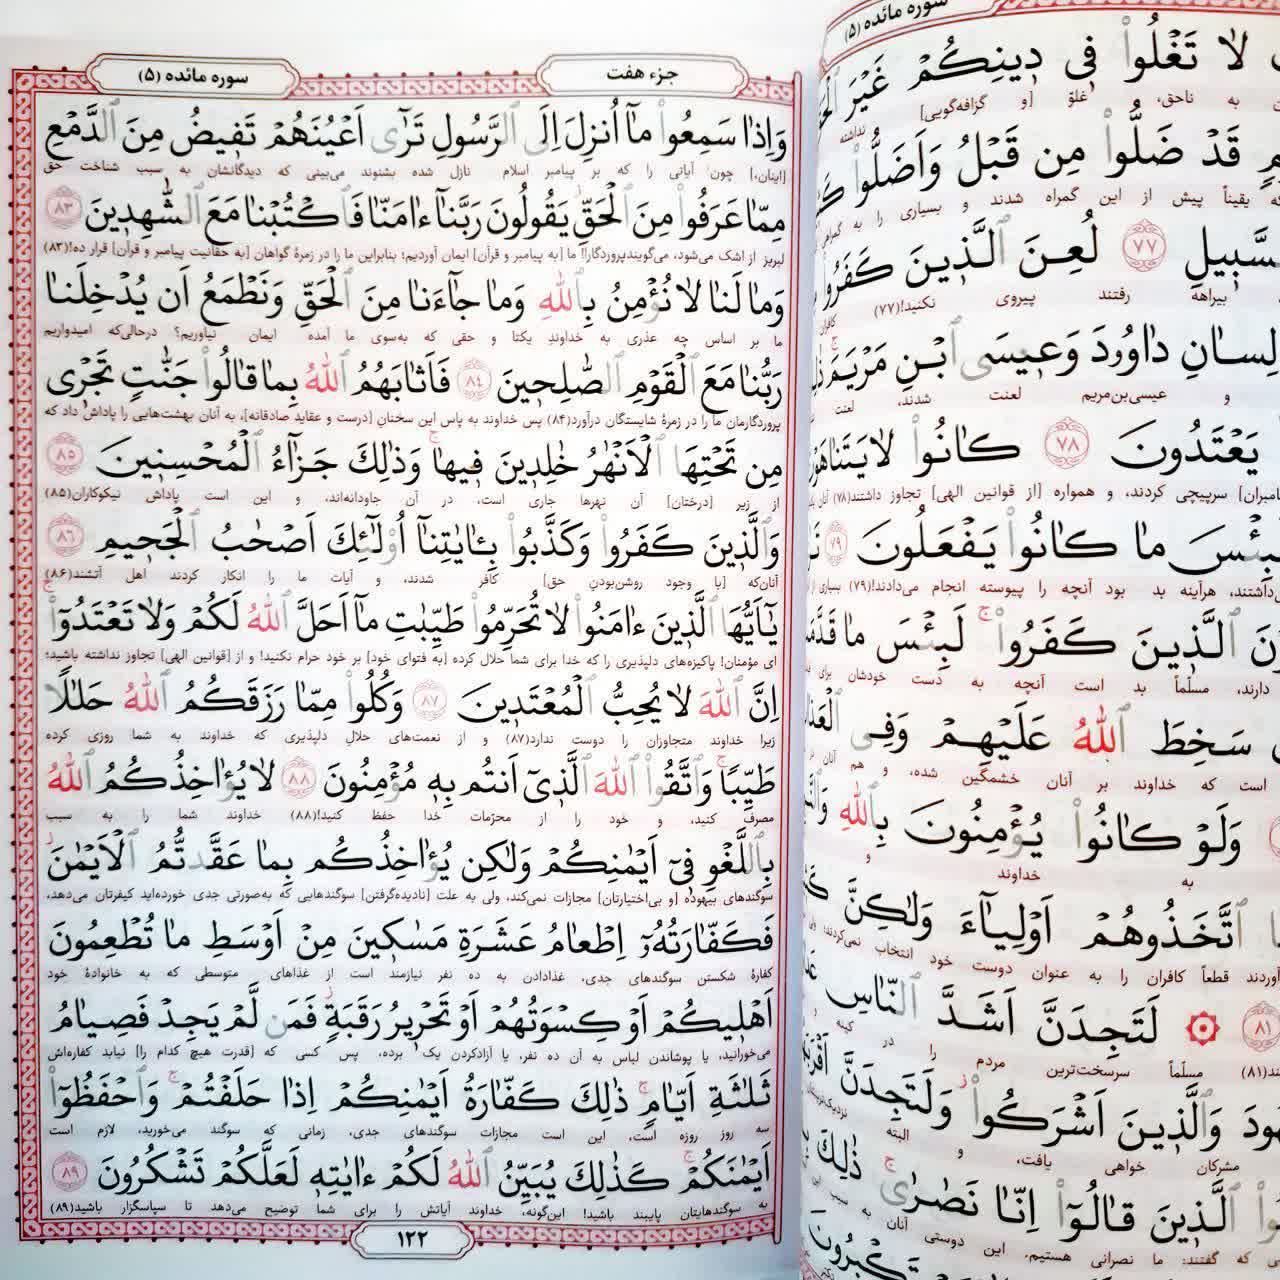 سوره مائده (۵)
لا تَغْلُوا فِي دِينِكُمْ غَيْرَ
به ناحق، غلوّ [و گزافه‌گویی]
قَدْ ضَلُّوا مِن قَبْلُ وَأَضَلُّوا
که یقیناً پیش از این گمراه شدند و بسیاری را به
السَّبِيلِ ۷۷ لُعِنَ الَّذِينَ كَفَرُوا
بیراهه رفتند پیروی نکنید!(۷۷)
لِسانِ داوُودَ وَعِيسَى ابْنِ مَرْيَمَ
و عیسی‌بن‌مریم لعنت شدند،
يَعْتَدُونَ ۷۸ كانُوا لا يَتَناهَوْنَ
سرپیچی کردند، و همواره [از قوانین الهی] تجاوز داشتند(۷۸)
لَبِئْسَ ما كانُوا يَفْعَلُونَ ۷۹
هرآینه بد بود آنچه را پیوسته انجام می‌دادند!(۷۹)
الَّذِينَ كَفَرُوا لَبِئْسَ ما قَدَّمَتْ
دارند، مسلّماً بد است آنچه به دست خودشان برای
سَخِطَ اللهُ عَلَيْهِمْ وَفِي الْعَذابِ
است که خداوند بر آنان خشمگین شده، و هم
وَلَوْ كانُوا يُؤْمِنُونَ بِاللهِ
به خداوند و
اتَّخَذُوهُمْ أَوْلِياءَ وَلٰكِنَّ
قطعاً کافران را به عنوان دوست خود انتخاب نمی‌کردند؛
۸۱ لَتَجِدَنَّ أَشَدَّ النَّاسِ
مسلّماً سرسخت‌ترین مردم را در کینه
وَالَّذِينَ أَشْرَكُوا وَلَتَجِدَنَّ
مشرکان خواهی یافت، و البته
الَّذِينَ قالُوا إِنَّا نَصارىٰ ذٰلِكَ
که گفتند: ما نصرانی هستیم. این دوستی آنان به سبب این
جزء هفت
سوره مائده (۵)
وَإِذا سَمِعُوا ما أُنزِلَ إِلَى الرَّسُولِ تَرىٰ أَعْيُنَهُمْ تَفِيضُ مِنَ الدَّمْعِ
[اینان،] چون آیاتی را که بر پیامبر اسلام نازل شده بشنوند می‌بینی که دیدگانشان به سبب شناخت حق
مِمّا عَرَفُوا مِنَ الْحَقِّ يَقُولُونَ رَبَّنا ءامَنّا فَاكْتُبْنا مَعَ الشّٰهِدِينَ ۸۳
لبریز از اشک می‌شود، می‌گویند پروردگارا! ما [به پیامبر و قرآن] ایمان آوردیم؛ بنابراین ما را در زمرهٔ گواهان [به حقانیت پیامبر و قرآن] قرار ده!(۸۳)
وَما لَنا لا نُؤْمِنُ بِاللهِ وَما جاءَنا مِنَ الْحَقِّ وَنَطْمَعُ أَن يُدْخِلَنا
ما بر اساس چه عذری به خداوند یکتا و حقی که به‌سوی ما آمده ایمان نیاوریم؟ درحالی‌که امیدواریم
رَبُّنا مَعَ الْقَوْمِ الصّٰلِحِينَ ۸۴ فَأَثابَهُمُ اللهُ بِما قالُوا جَنّٰتٍ تَجْرِي
پروردگارمان ما را در زمرهٔ شایستگان درآورد(۸۴) پس خداوند به پاس این سخنانِ [درست و عقاید صادقانه]، به آنان بهشت‌هایی را پاداش داد که
مِن تَحْتِهَا الْأَنْهٰرُ خٰلِدِينَ فِيها وَذٰلِكَ جَزاءُ الْمُحْسِنِينَ ۸۵
از زیر [درختان] آن نهرها جاری است، در آن جاودانه‌اند، و این است پاداش نیکوکاران(۸۵)
وَالَّذِينَ كَفَرُوا وَكَذَّبُوا بِـٔايٰتِنا أُولٰئِكَ أَصْحٰبُ الْجَحِيمِ ۸۶
آنان‌که [با وجود روشن‌بودنِ حق] کافر شدند، و آیات ما را انکار کردند اهل آتشند(۸۶)
يٰأَيُّهَا الَّذِينَ ءامَنُوا لا تُحَرِّمُوا طَيِّبٰتِ ما أَحَلَّ اللهُ لَكُمْ وَلا تَعْتَدُوا
ای مؤمنان! پاکیزه‌های دلپذیری را که خدا برای شما حلال کرده [به فتوای خود] بر خود حرام نکنید! و از [قوانین الهی] تجاوز نداشته باشید؛
إِنَّ اللهَ لا يُحِبُّ الْمُعْتَدِينَ ۸۷ وَكُلُوا مِمّا رَزَقَكُمُ اللهُ حَلٰلًا
زیرا خداوند متجاوزان را دوست ندارد(۸۷) و از نعمت‌های حلالِ دلپذیری که خداوند به شما روزی کرده
طَيِّبًا وَاتَّقُوا اللهَ الَّذِي أَنتُم بِهِ مُؤْمِنُونَ ۸۸ لا يُؤاخِذُكُمُ اللهُ
مصرف کنید، و خود را از محرّمات خدا حفظ کنید!(۸۸) خداوند شما را به سبب
بِاللَّغْوِ فِي أَيْمٰنِكُمْ وَلٰكِن يُؤاخِذُكُم بِما عَقَّدتُّمُ الْأَيْمٰنَ
سوگندهای بیهوده [و بی‌اختیارتان] مجازات نمی‌کند، ولی به علت [نادیده‌گرفتن] سوگندهایی که به‌صورتی جدی خورده‌اید کیفرتان می‌دهد،
فَكَفّارَتُهُ إِطْعامُ عَشَرَةِ مَسٰكِينَ مِنْ أَوْسَطِ ما تُطْعِمُونَ
کفارهٔ شکستن سوگندهای جدی، غذادادن به ده نفر نیازمند است از غذاهای متوسطی که به خانوادهٔ خود
أَهْلِيكُمْ أَوْ كِسْوَتُهُمْ أَوْ تَحْرِيرُ رَقَبَةٍ فَمَن لَمْ يَجِدْ فَصِيامُ
می‌خورانید، یا پوشاندن لباس به آن ده نفر، یا آزادکردن یک برده، پس کسی که [قدرت هیچ کدام را] نیابد کفاره‌اش
ثَلٰثَةِ أَيّامٍ ذٰلِكَ كَفّارَةُ أَيْمٰنِكُمْ إِذا حَلَفْتُمْ وَاحْفَظُوا
سه روز روزه است، این است مجازات سوگندهای جدی، زمانی که سوگند می‌خورید، لازم است
أَيْمٰنَكُمْ كَذٰلِكَ يُبَيِّنُ اللهُ لَكُمْ ءايٰتِهِ لَعَلَّكُمْ تَشْكُرُونَ ۸۹
به سوگندهایتان پایبند باشید! این‌گونه، خداوند آیاتش را برای شما توضیح می‌دهد تا سپاسگزار باشید(۸۹)
۱۲۲